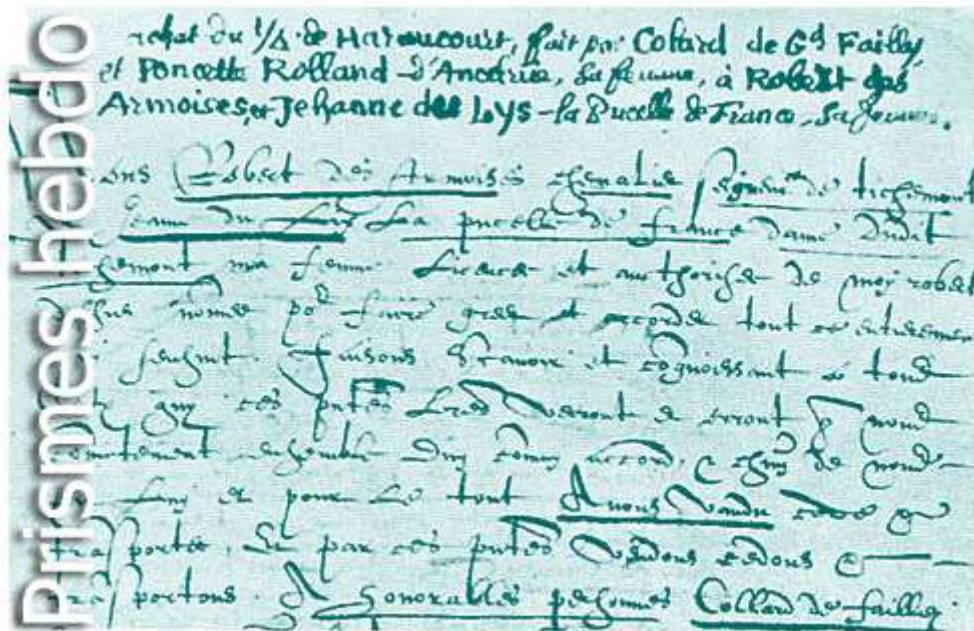 Prismes hebdo
achat du 1/4 de Haraucourt, fait par Collard de Gd Failly
et Poncette Rolland d'Ancerie, sa femme, à Robert des
Armoises, et Jehanne des Lys la Pucelle de France, sa femme.
Robert des Armoises chevalier seigneur de tichemont
Jeanne du Lys La pucelle de france dame dudit
ma femme Licence et authorisee de moy robert
nomme po faire gree et acorder tout ce entierement
faisons Scavoir et cognoissant a tous
quy ces pntes Lres verront et orront
ensemble d'ung comung accord, de nous
et pour Le tout Avons Vandu
trasportee, Et par ces pntes Vendons cedons
trasportons A honorables personnes Collard de failly